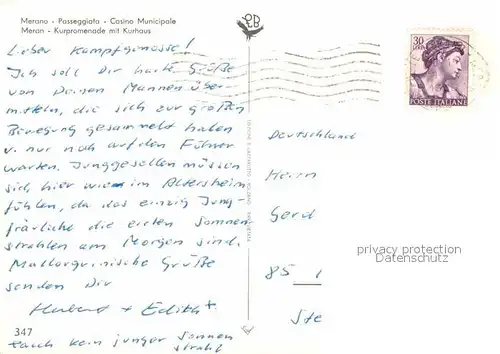 Merano - Passeggiata - Casino Municipale
Meran - Kurpromenade mit Kurhaus
Lieber Kampfgenosse!
Ich soll Dir harte Grüße
von Deinen Mannen über-
mitteln, die sich zur großen
Bewegung gesammelt haben
u. nur noch auf den Führer
warten. Junggesellen müssen
sich hier wie im Altersheim
fühlen, da das einzig Jung-
fräuliche die ersten Sonnen
strahlen am Morgen sind.
Grüße
senden Dir
Hubert + Edith +
+ auch kein junger Sonnen
strahl
347
30
LIRE
POSTE ITALIANE
Deutschland
Herrn
Gerd
85
Ste
privacy protection
Datenschutz